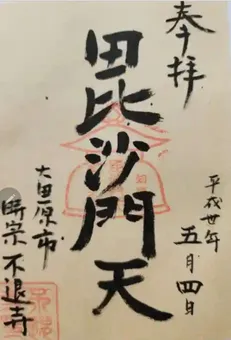 奉拝
毘沙門天
平成卅年
五月四日
大田原市
時宗不退寺